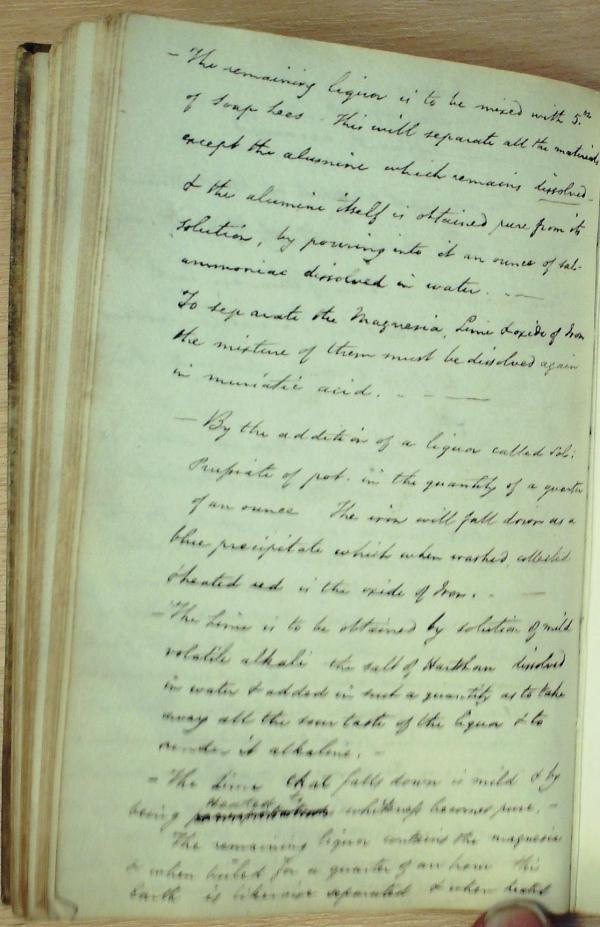 - The remaining liquor is to be mixed with 5.
of Soap Lees This will separate all the materials
except the alumine which remains dissolved -
& the alumine itself is obtained pure from its
solution, by pouring into it an ounce of sal-
ammoniac dissolved in water. - -
To separate the Magnesia, Lime & oxide of Iron
the mixture of them must be dissolved again
in muriatic acid. - - -
- By the addition of a liquor called Sol:
Prussiate of pot. in the quantity of a quarter
of an ounce The iron will fall down as a
blue precipitate which when washed, collected
& heated red is the oxide of Iron. - -
- The Lime is to be obtained by solution of mild
volatile alkali the salt of Hartshorn dissolved
in water & added in such a quantity as to take
away all the sour taste of the liquor & to
render it alkaline. -
- The Lime that falls down is mild & by
being heated to whiteness becomes pure. -
The remaining liquor contains the magnesia
& when boiled for a quarter of an hour this
Earth is likewise separated & when